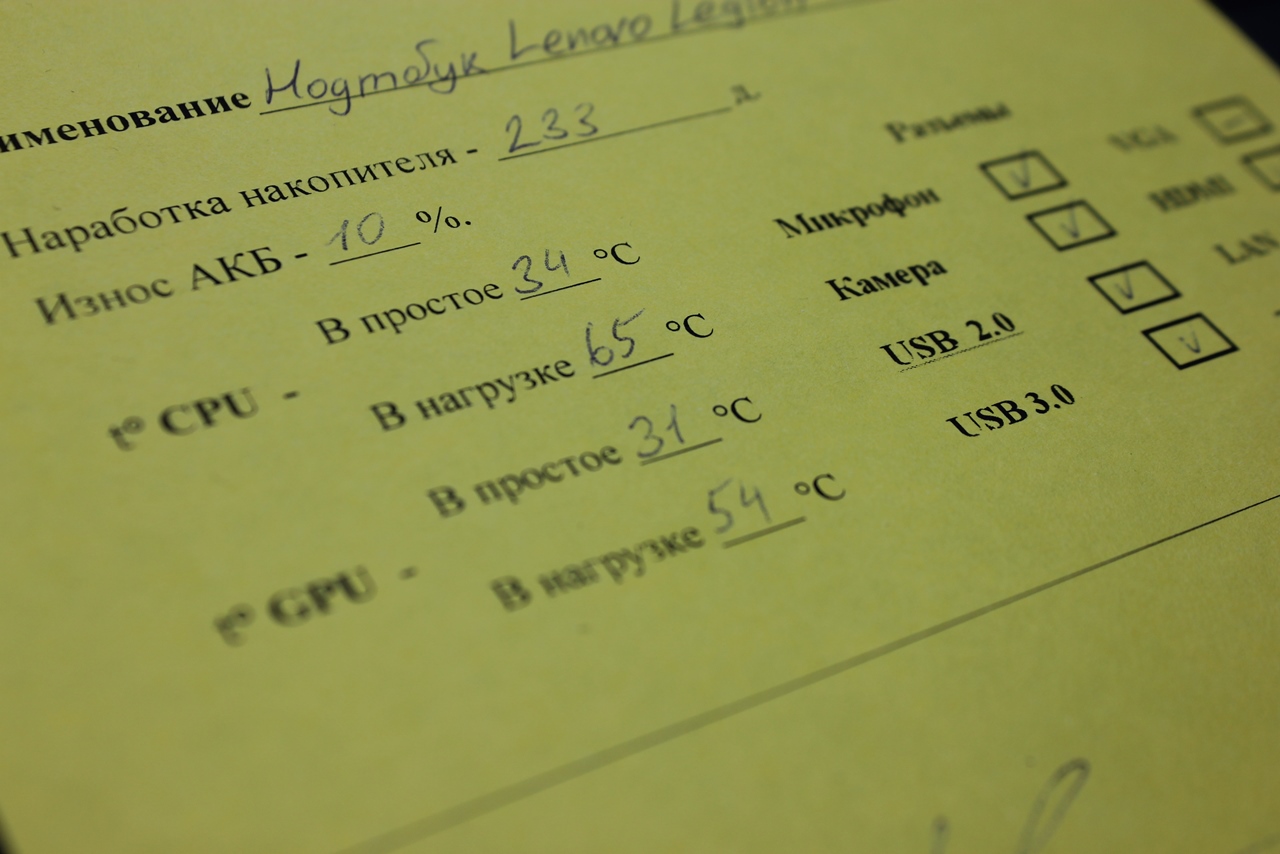 именование Ноутбук Lenovo Legion
Наработка накопителя - 233 д.
Износ АКБ - 10 %.
t° CPU -
В простое 34 °C
В нагрузке 65 °C
t° GPU -
В простое 31 °C
В нагрузке 54 °C
Разъемы
Микрофон
Камера
USB 2.0
USB 3.0
VGA
HDMI
LAN